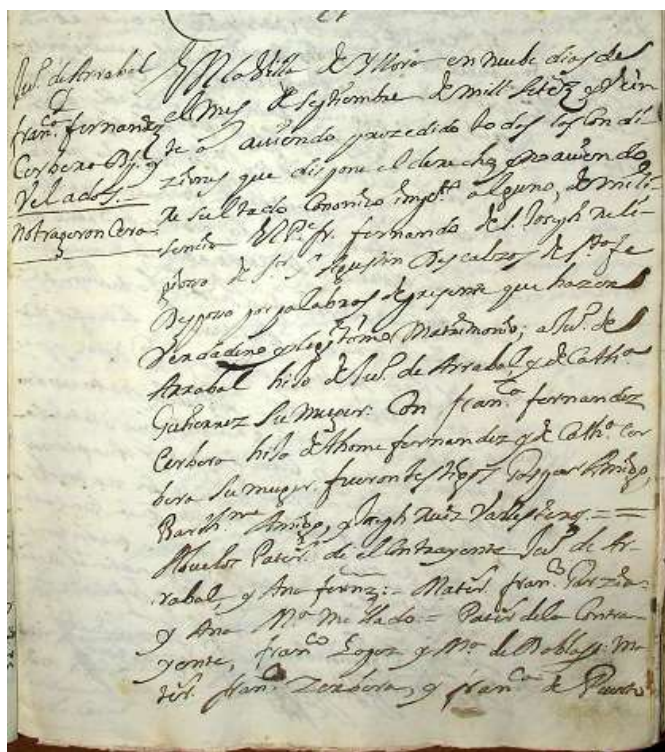 Ju.º de Arrabal
y
fran.ca fernandez
Cerbera
Velados.
No trageron Cera.
En la Villa de Yllora en nuebe dias de
el mes de Septiembre de mill Setez.s y Vein
te a aviendo prozedido todos los con di
ziones que dispone el derecho, y no aviendo
Resultado Canonico impedi.to alguno, de mi li
senzia El P.e fr. fernando de S. Joseph Reli
gioso de Agustin Descalzos de
Desposo por palabras de presente que hazen
Verdadero y legitimo Matrimonio, a Ju.º de
Arrabal hijo de Ju.º de Arrabal y de Cath.a
Gutierrez Su Muger: Con fran.ca fernandez
Cerbera hija de thome fernandez y de Cath.a Cer
bera Su muger. fueron testigos Gaspar Amigo,
Barth.me Amigo, y Joseph Ruiz =
Abuelos Pater.s de el Contrayente Ju.º de Ar-
rabal, y Ana fern.z:= Mater.s fran.co Garzia
y Ana M.a Mellado = Pater.s de la Contra-
yente, fran.co Lopez y M.a de Robles: Ma
ter.s fran.co Zerbera, y fran.ca de Puerto